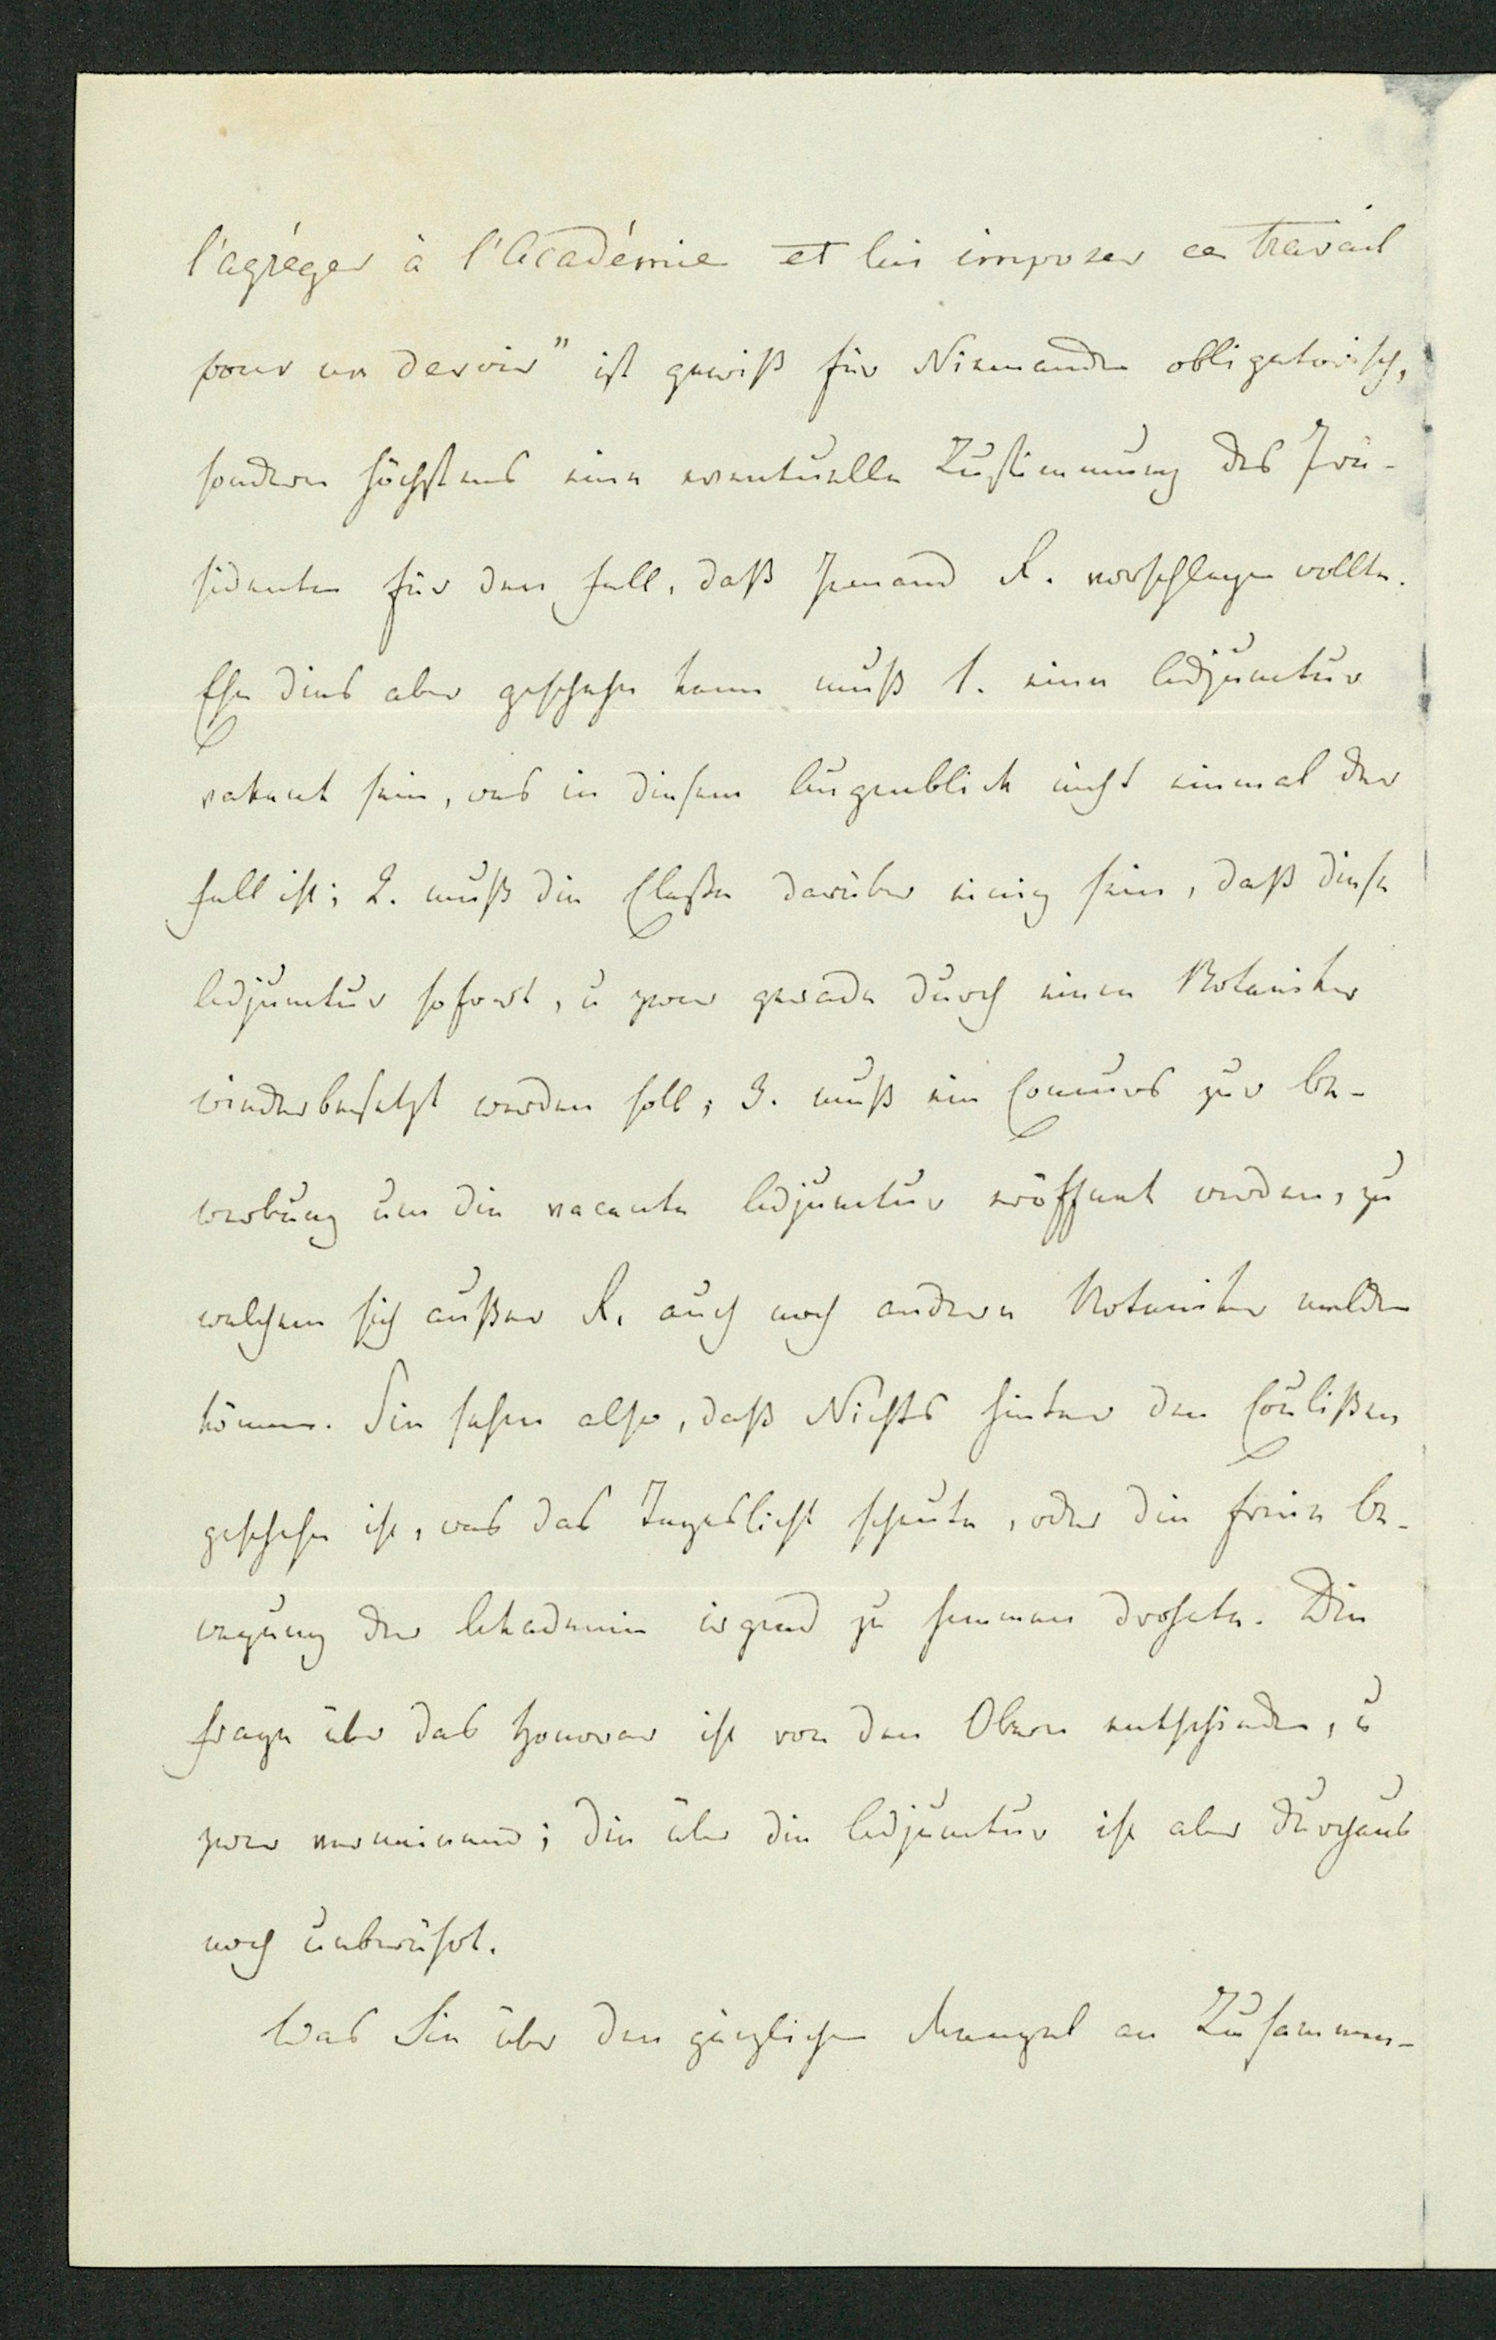 l'agréger à l'Académie et lui imposer ce travail
pour un devoir" ist gewiß für Niemanden obligatorisch,
sondern höchstens eine eventuelle Zustimmung des Prä-
sidenten für den Fall, daß Jemand R. vorschlagen wollte.
Ehe dies aber geschehen kann muß 1. eine Adjunctur
vakant sein, was in diesem Augenblick nicht einmal der
Fall ist; 2. muß die Classe darüber einig sein, daß diese
Adjunctur sofort, u zwar gerade durch einen Botaniker
wiederbesetzt werden soll; 3. muß ein Concurs zur Be-
werbung um die vacante Adjunctur eröffnet werden, zu
welchem sich außer R. auch noch andere Botaniker melden
können. Sie sehen also, daß Nichts hinter den Coulißen
geschehen ist, was das Tageslicht scheute, oder die freie Be-
wegung der Akademie irgend zu hemmen drohete. Die
Frage über das Honorar ist von den Obern entschieden, u
zwar verneinend; die über die Adjunctur ist aber durchaus
noch unberührt.
Was Sie über den gänzlichen Mangel an Zusammen-